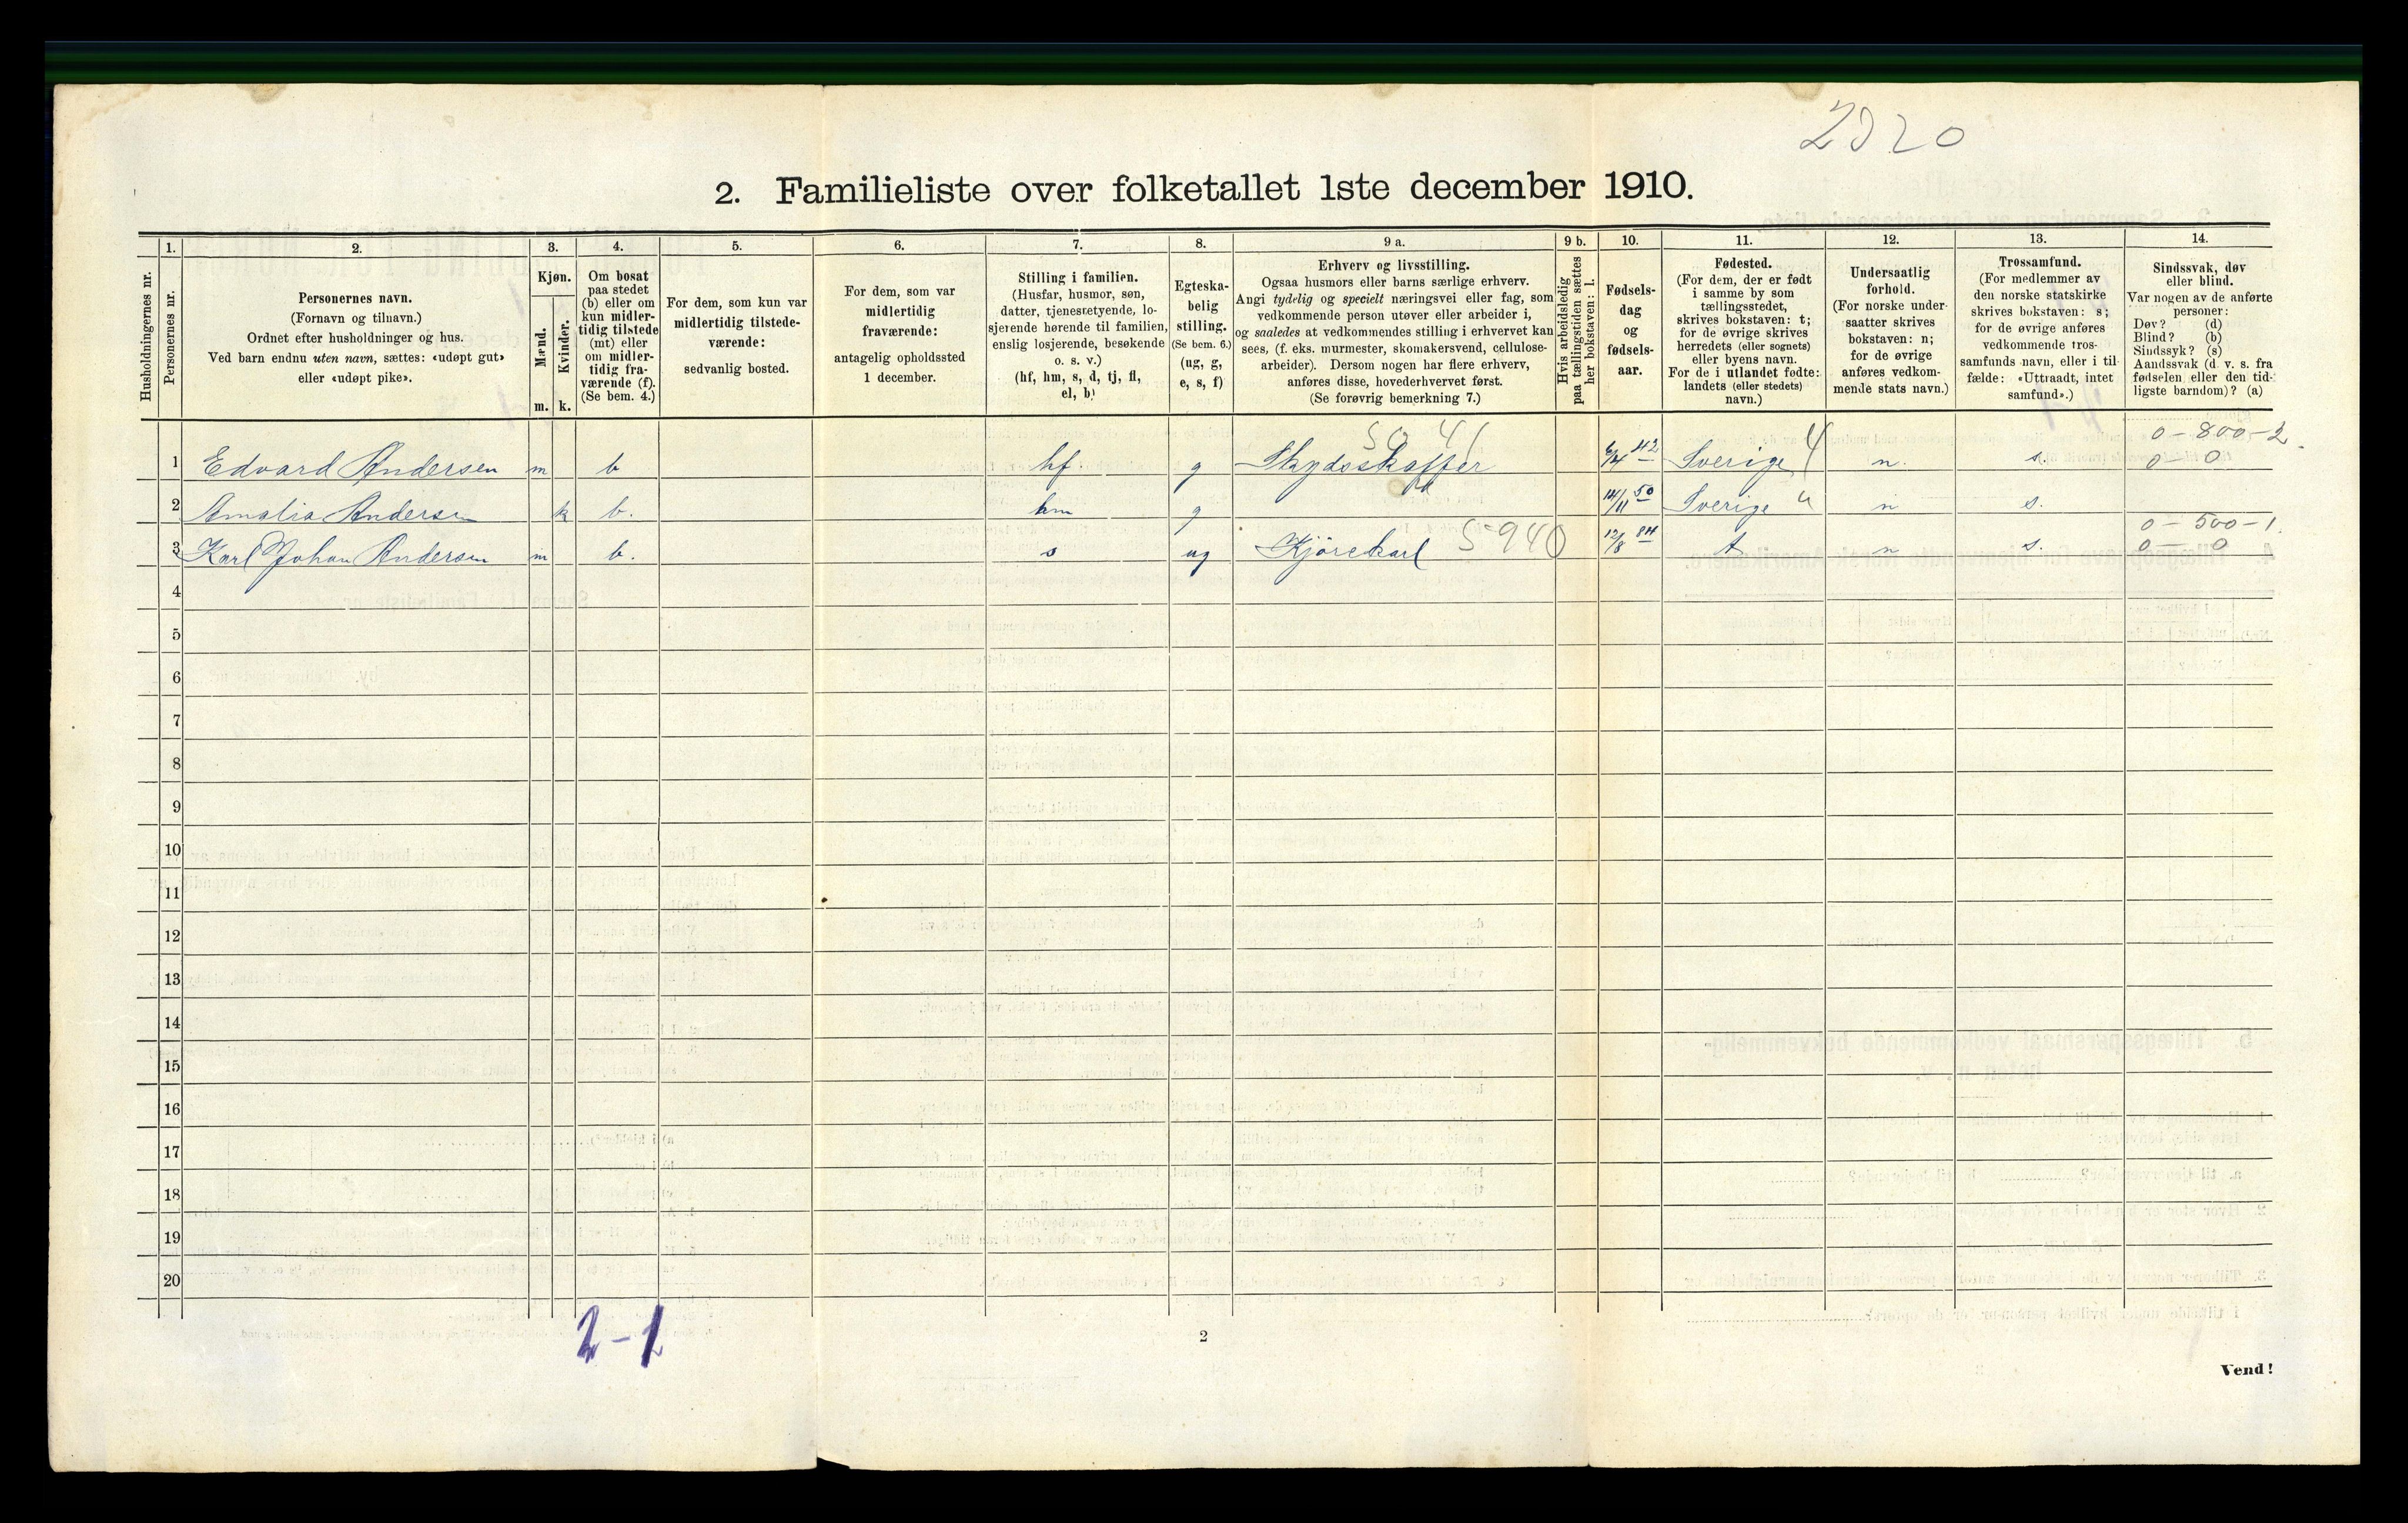 2320
2. Familieliste over folketallet 1ste december 1910.
Husholdningernes nr.
1. Personernes nr.
2. Personernes navn.
(Fornavn og tilnavn.)
Ordnet efter husholdninger og hus.
Ved barn endnu uten navn, sættes: «udøpt gut»
eller «udøpt pike».
3. Kjøn.
Mænd. m.
Kvinder. k.
4. Om bosat
paa stedet
(b) eller om
kun midler-
tidig tilstede
(mt) eller
om midler-
tidig fra-
værende (f).
(Se bem. 4.)
5. For dem, som kun var
midlertidig tilstede-
værende:
sedvanlig bosted.
6. For dem, som var
midlertidig
fraværende:
antagelig opholdssted
1 december.
7. Stilling i familien.
(Husfar, husmor, søn,
datter, tjenestetyende, lo-
sjerende hørende til familien,
enslig losjerende, besøkende
o. s. v.)
(hf, hm, s, d, tj, fl,
el, b)
8. Egteska-
belig
stilling.
(Se bem. 6.)
(ug, g,
e, s, f)
9 a. Erhverv og livsstilling.
Ogsaa husmors eller barns særlige erhverv.
Angi tydelig og specielt næringsvei eller fag, som
vedkommende person utøver eller arbeider i,
og saaledes at vedkommendes stilling i erhvervet kan
sees, (f. eks. murmester, skomakersvend, cellulose-
arbeider). Dersom nogen har flere erhverv,
anføres disse, hovederhvervet først.
(Se forøvrig bemerkning 7.)
9 b. Hvis arbeidsledig
paa tællingstiden sættes
her bokstaven: l.
10. Fødsels-
dag
og
fødsels-
aar.
11. Fødested.
(For dem, der er født
i samme by som
tællingsstedet,
skrives bokstaven: t;
for de øvrige skrives
herredets (eller sognets)
eller byens navn.
For de i utlandet fødte:
landets (eller stedets)
navn.)
12. Undersaatlig
forhold.
(For norske under-
saatter skrives
bokstaven: n;
for de øvrige
anføres vedkom-
mende stats navn.)
13. Trossamfund.
(For medlemmer av
den norske statskirke
skrives bokstaven: s;
for de øvrige anføres
vedkommende tros-
samfunds navn, eller i til-
fælde: «Uttraadt, intet
samfund».)
14. Sindssvak, døv
eller blind.
Var nogen av de anførte
personer:
Døv? (d)
Blind? (b)
Sindssyk? (s)
Aandssvak (d. v. s. fra
fødselen eller den tid-
ligste barndom)? (a)
0-800-2
1 Edvard Andersen m b hf. g Skydsskaffer 6/4 42 Sverige 4 n. s. 0 0
2 Amalia Andersen k b. hm g 14/11 50 Sverige n s.
0-500-1
3 Karl Johan Andersen m b. s ug Kjørekarl 5940 12/8 84 t n s. 0-0
4
5
6
7
8
9
10
11
12
13
14
15
16
17
18
19
20
2-1
2
Vend!